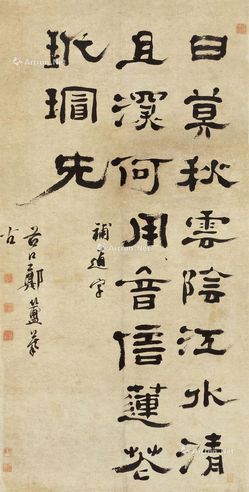 日莫秋雲陰江水清
且深何用音信蓮花
玳瑁兂
補通字
谷口鄭簠
Artron.Net